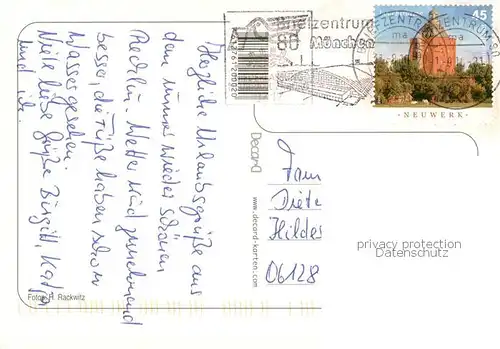 Briefzentrum
80
München
BRIEFZENTRUM 80
45
- NEUWERK -
Herzliche Urlaubsgrüße aus
dem immer wieder schönen
Wetter wird zunehmend
besser, die Füße haben schon
Wasser gesehen.
Viele liebe Grüße Birgitt,
und
Foto: H. Rackwitz
Decard
www.decard-karten.com
Fam
Diete
Hildes
06128
privacy protection
Datenschutz